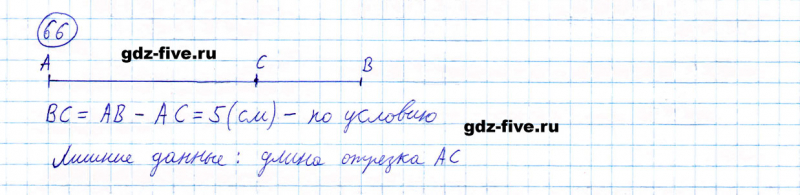 66
gdz-five.ru
A C B
BC = AB - AC = 5 (см) - по условию
gdz-five.ru
Лишние данные: длина отрезка AC